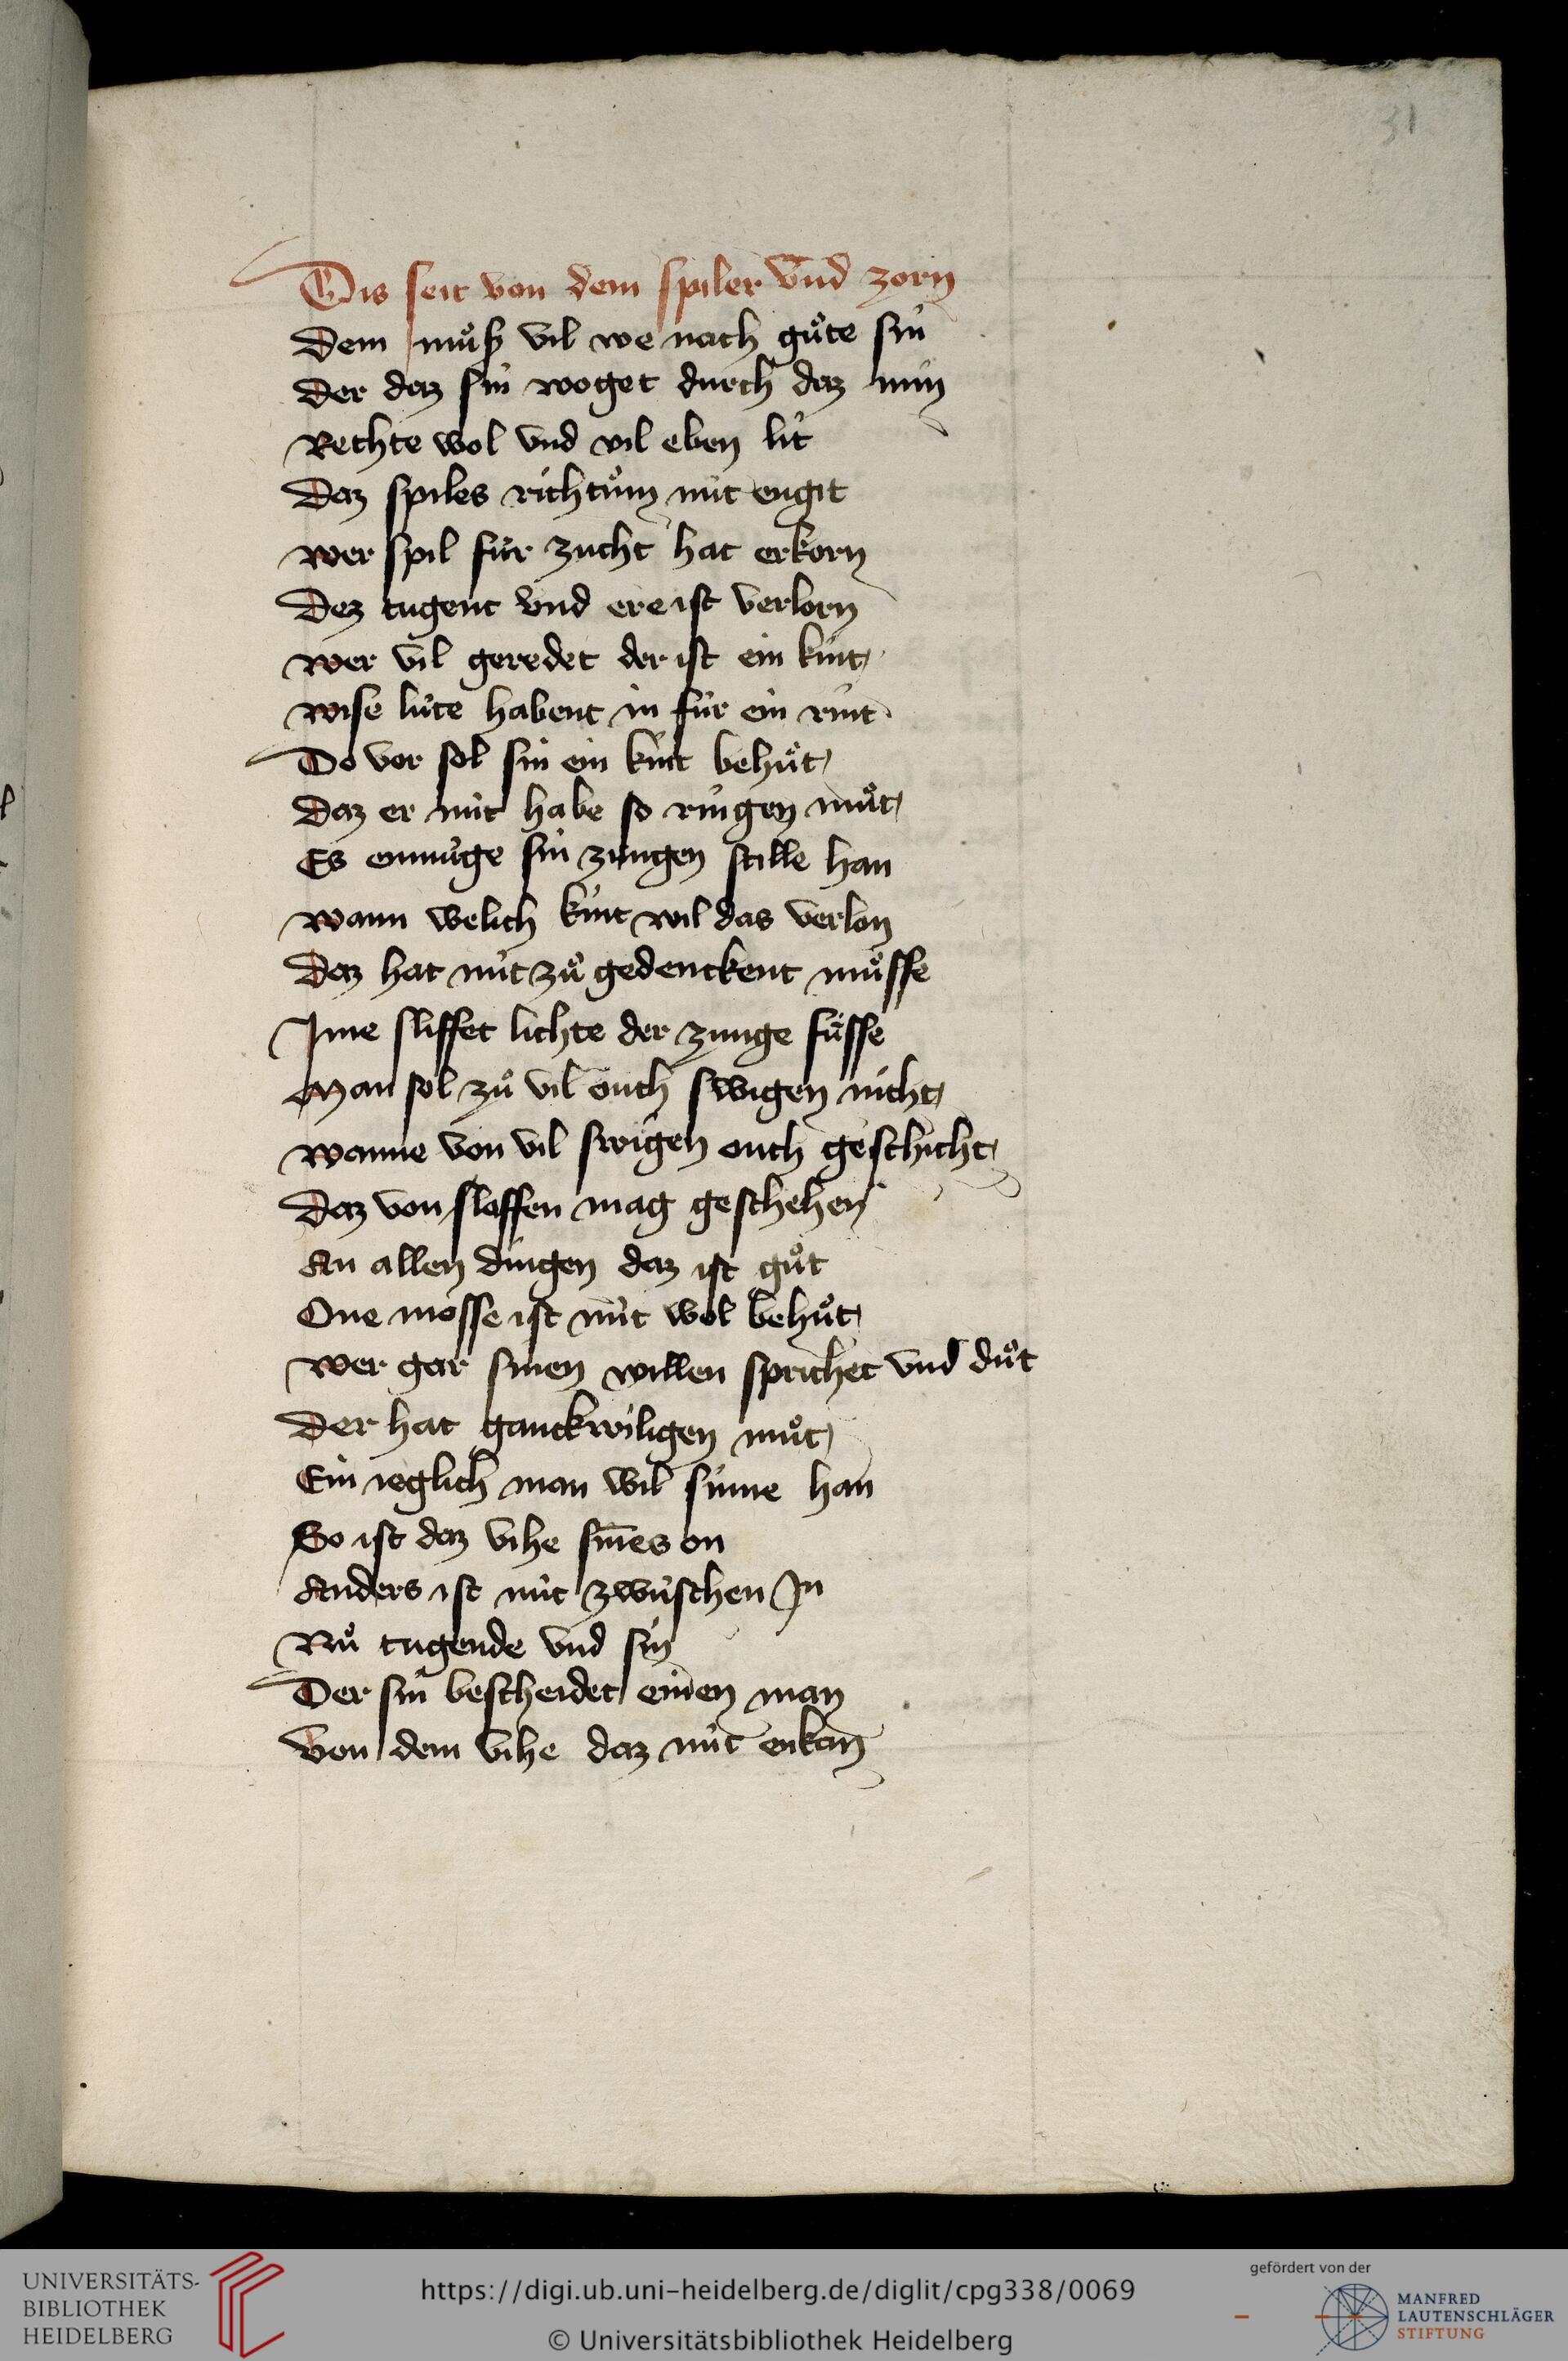 31
Dis seit von dem spiler vnd zorn
Dem muͦß vil we nach guͦte sin
Der daz sin woget durch daz min
Rechte wol vnd vil eben lit
Daz spiles richtuͦm nüt engit
Wer spil für zucht hat erkorn
Dez tugent vnd ere ist verlorn
Wer vil geredet der ist ein kint
Wise lüte habent in für ein rint
Do vor sol sin ein kint behuͦt
Daz er nüt habe so ringen muͦt
Es enmüge sin zungen stille han
Wann welich kint wil das verlon
Daz hat nüt zuͦ gedenckent muͦsse
Ime sliffet lichte der zunge fuͤsse
Man sol zuͦ vil ouch swigen nicht
Wanne von vil swigen ouch geschicht
Daz von sloffen mag geschehen
An allen dingen daz ist guͦt
One mosse ist nüt wol behuͦt
Wer gar sinen willen sprichet vnd duͦt
Der hat ganckwiligen muͦt
Ein ieglich man wil sinne han
So ist daz vihe sin̄es on
Anders ist nüt zwüschen In
Nuͦ tugende vnd sin
Der sin bescheidet einen man
Von dem vihe daz nüt enkan
UNIVERSITÄTS-
BIBLIOTHEK
HEIDELBERG
https://digi.ub.uni-heidelberg.de/diglit/cpg338/0069
© Universitätsbibliothek Heidelberg
gefördert von der
MANFRED
LAUTENSCHLÄGER
STIFTUNG